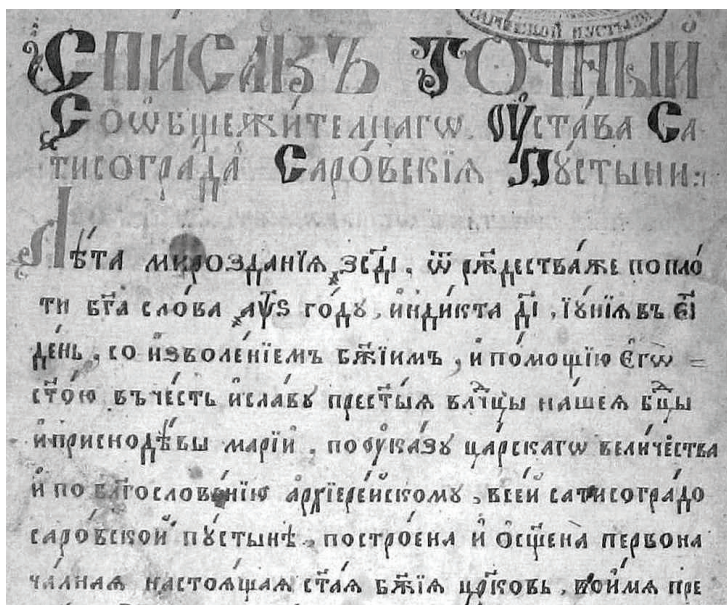 САРОВСКОЙ ПУСТЫНИ
Списакъ точный
Соѡбщежи́телнагѡ Оу҆ста́ва Са-
тисогра́да Саро́вскїѧ Пꙋ́стыни:
Лѣ́та мироздапїѧ ҂зсд҃і, ѿ рж҃дествáже попло́
ти бг҃а сло́ва ҂аѱ҃ѕ го́дꙋ, и҆нди́кта д҃і, і҆ꙋ́нїѧ въ є҃і
де́нь, со и҆зволе́нїемъ бж҃їимъ, и҆ по́мощїю є҆гѡ̀ =
ст҃о́ю въ че́сть и҆ сла́вꙋ прест҃ы́ѧ влⷣчцы на́шеѧ бцⷣы
и҆ приснодѣ́вы марі́и, по оу҆ка́зꙋ ца́рскагѡ вели́чества
и҆ по блгⷭ҇ослове́нїю а҆рхїере́йскомꙋ, всей сатисогра́до
саро́вской пꙋ́стынѣ, постро́ена и҆ ѻ҆сщ҃е́на первона
ча́лнаѧ настоѧ́щаѧ ст҃а́ѧ бж҃їѧ цр҃ковь, во и҆́мѧ пре